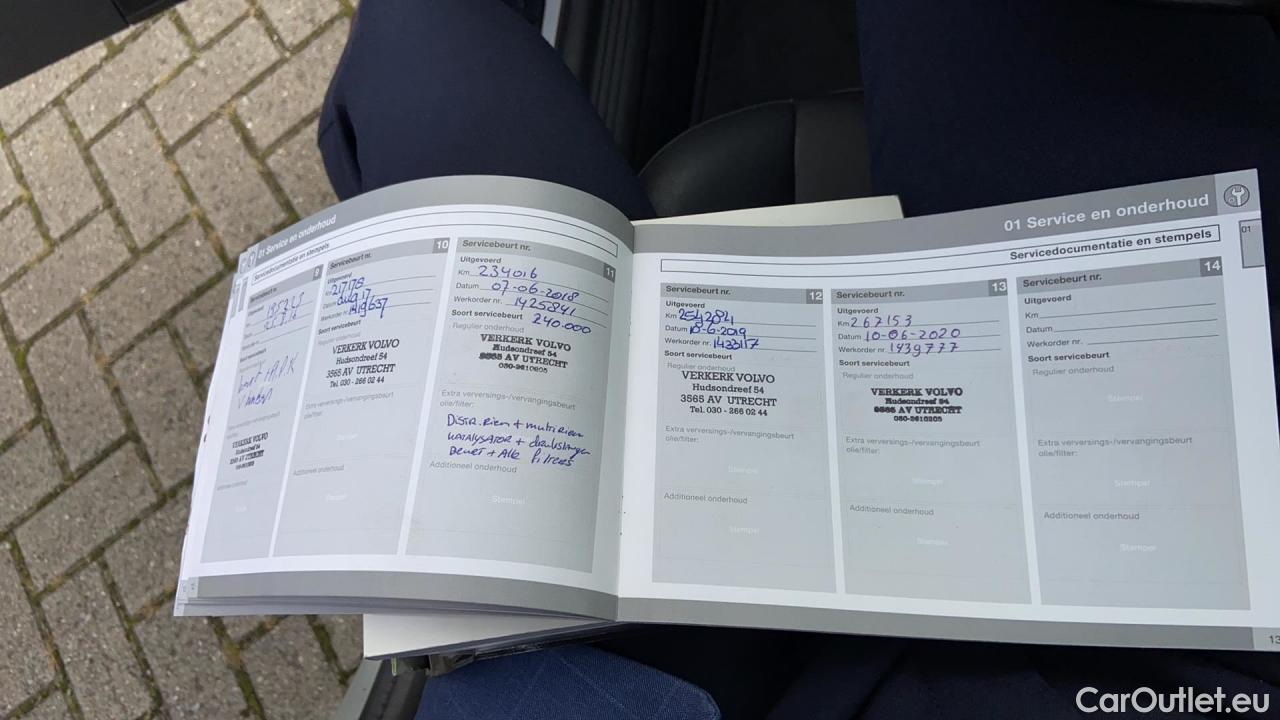 01 Service en onderhoud
Servicedocumentatie en stempels
9
Servicebeurt nr.
Uitgevoerd
VERKERK VOLVO
10
Servicebeurt nr.
Uitgevoerd
Km 217178
Datum aug 17
Werkorder nr.
Soort servicebeurt
Regulier onderhoud
VERKERK VOLVO
Hudsondreef 54
3565 AV UTRECHT
Tel. 030 - 266 02 44
Extra verversings-/vervangingsbeurt
olie/filter:
Stempel
Additioneel onderhoud
Stempel
11
Servicebeurt nr.
Uitgevoerd
Km 234016
Datum 07-06-2018
Werkorder nr. 1425841
Soort servicebeurt 240.000
Regulier onderhoud
VERKERK VOLVO
Hudsondreef 54
3565 AV UTRECHT
030-2610205
Extra verversings-/vervangingsbeurt
olie/filter:
Distr. Riem + multi Riem
KATALYSATOR +
+ Alle filters
Additioneel onderhoud
Stempel
01 Service en onderhoud
01
Servicedocumentatie en stempels
12
Servicebeurt nr.
Uitgevoerd
Km 254284
Datum 18-6-2019
Werkorder nr. 1433117
Soort servicebeurt
Regulier onderhoud
VERKERK VOLVO
Hudsondreef 54
3565 AV UTRECHT
Tel. 030 - 266 02 44
Extra verversings-/vervangingsbeurt
olie/filter:
Stempel
Additioneel onderhoud
Stempel
13
Servicebeurt nr.
Uitgevoerd
Km 267153
Datum 10-06-2020
Werkorder nr. 1439777
Soort servicebeurt
Regulier onderhoud
VERKERK VOLVO
Hudsondreef 54
3565 AV UTRECHT
030-2610205
Extra verversings-/vervangingsbeurt
olie/filter:
Stempel
Additioneel onderhoud
Stempel
14
Servicebeurt nr.
Uitgevoerd
Km
Datum
Werkorder nr.
Soort servicebeurt
Regulier onderhoud
Stempel
Extra verversings-/vervangingsbeurt
olie/filter:
Stempel
Additioneel onderhoud
Stempel
13
CarOutlet.eu